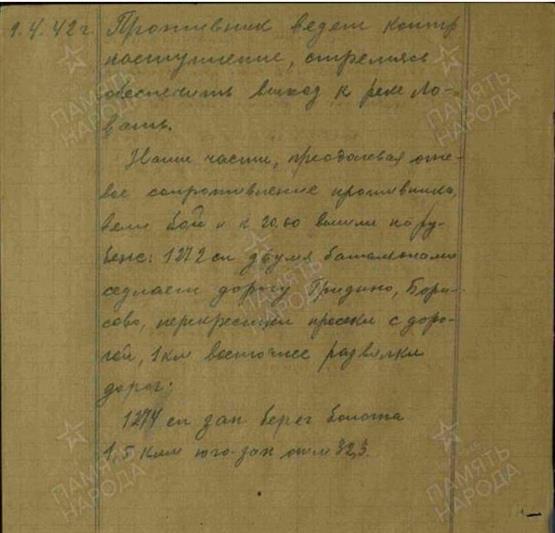 1.4.42 г Противник ведет контр
наступление, стремясь
обеспечить выход к реке Ло-
вать.
Наши части, преодолевая огне-
вое сопротивление противника,
вели бой и к 20.00 вышли на ру-
беже: 1272 сп двумя батальонами
седлает дорогу Гридино, Бори-
сово, перекрестки просеки с доро-
гой, 1 км восточнее развилки
дорог;
1274 сп зап берег болота
1,5 клм юго-зап отм 32,3.
ПАМЯТЬ
НАРОДА
ПАМЯТЬ
НАРОДА
ПАМЯТЬ
НАРОДА
ПАМЯТЬ
НАРОДА
ПАМЯТЬ
НАРОДА